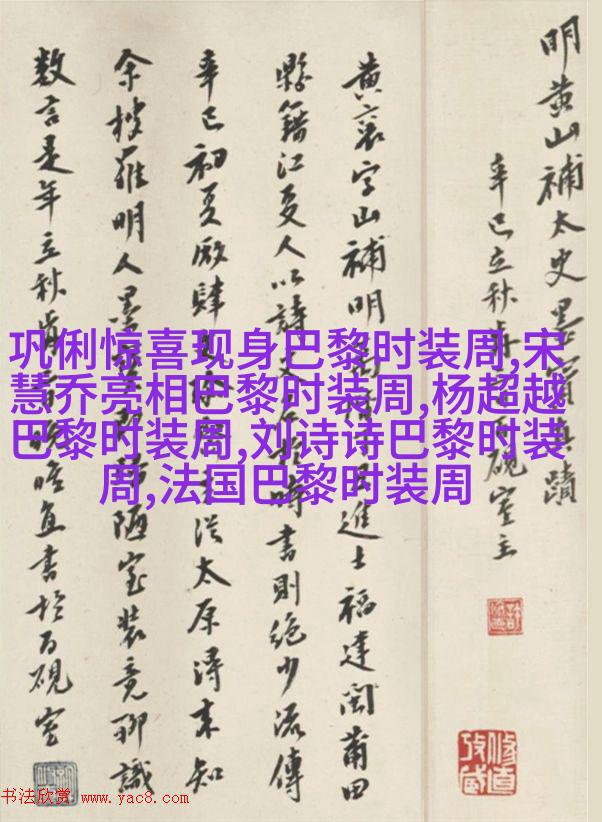 明黄山補太史墨蹟
辛巳立秋硯室主
黄襄字山補明進士福建閩莆田
縣籍江夏人以詩文時書則絶少流傳
辛巳初夏厰肆太原潯来知
余搜羅明人墨陋室装竟聊識
數言是年立秋書於百硯室
巩俐惊喜现身巴黎时装周,宋
慧乔亮相巴黎时装周,杨超越
巴黎时装周,刘诗诗巴黎时装
周,法国巴黎时装周
书法欣赏 www.yac8.com